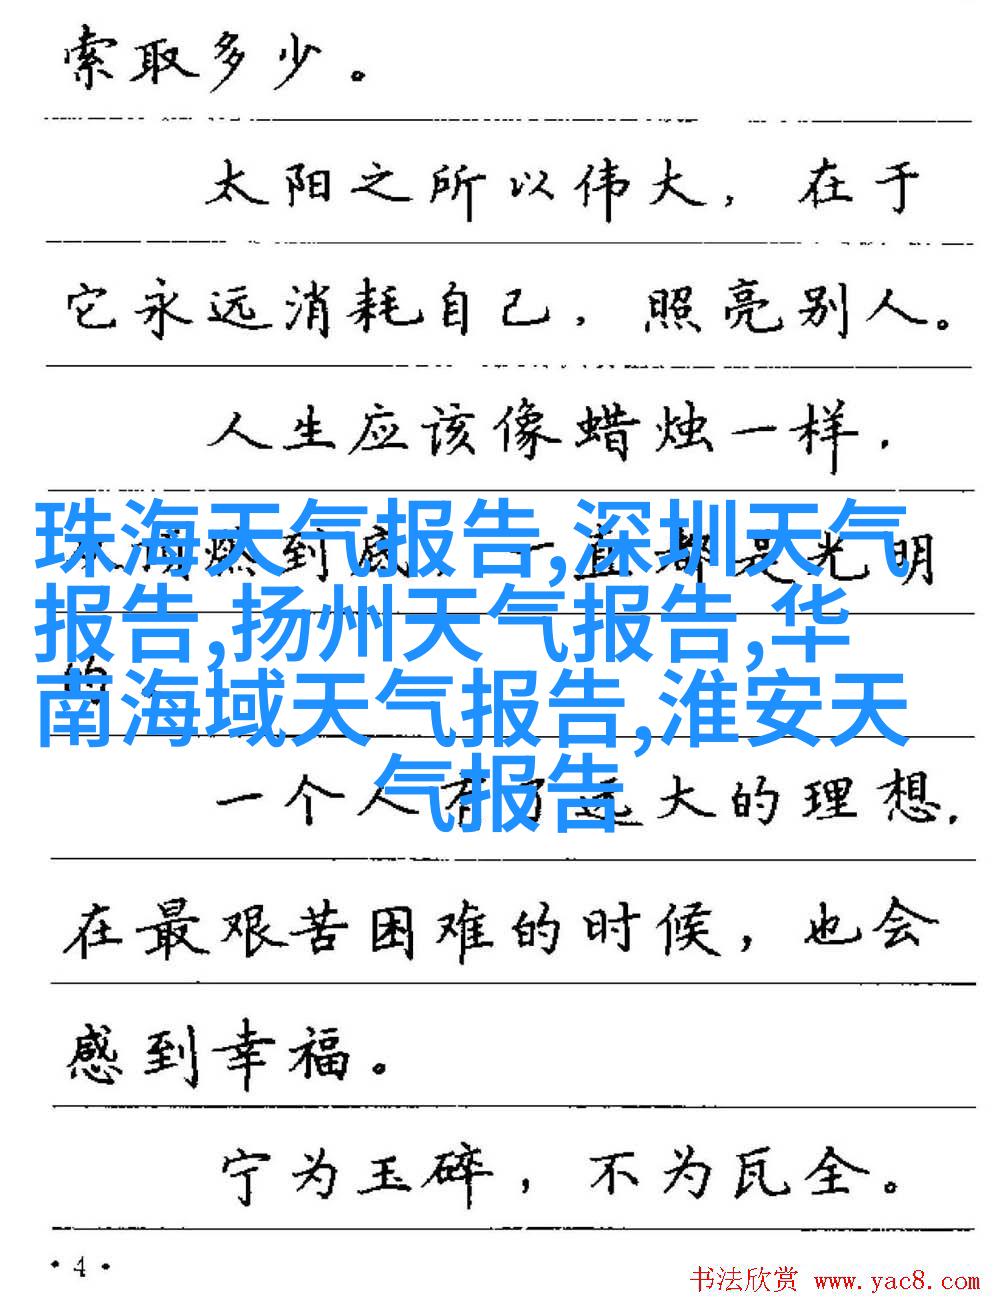 索取多少。
太阳之所以伟大，在于
它永远消耗自己，照亮别人。
人生应该像蜡烛一样，
到底，一直都是光明
的。
珠海天气报告,深圳天气
报告,扬州天气报告,华
南海域天气报告,淮安天
气报告
一个人有了远大的理想，
在最艰苦困难的时候，也会
感到幸福。
宁为玉碎，不为瓦全。
·4·
书法欣赏 www.yac8.com